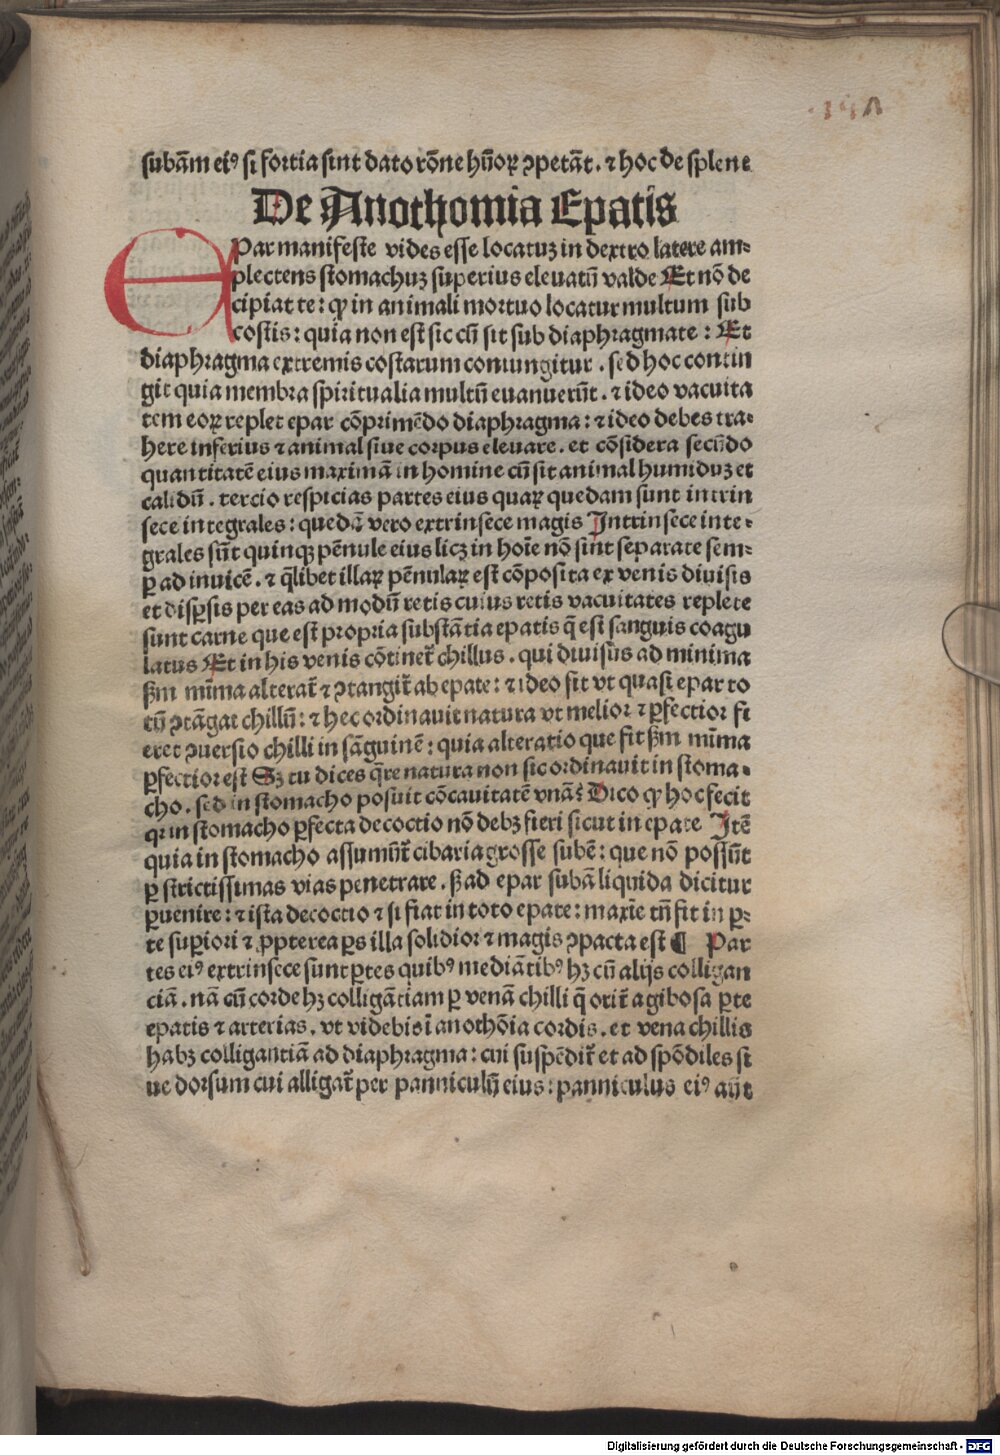 subãm eiꝰ si fortia sint dato rõne hũoꝝ ꝯpetãt. ⁊ hoc de splene
De Anothomia Epatis
EPar manifeste vides esse locatuz in dextro latere am⸗
plectens stomachuz superius eleuatũ valde Et nõ de
cipiat te: ꝙ in animali mortuo locatur multum sub
costis: quia non est sic cũ sit sub diaphragmate: Et
diaphragma extremis costarum coniungitur. sed hoc contin
git quia membra spiritualia multũ euanuerũt. ⁊ ideo vacuita
tem eoꝝ replet epar cõprimẽdo diaphragma: ⁊ ideo debes tra⸗
here inferius ⁊ animal siue corpus eleuare. et cõsidera secũdo
quantitatẽ eius maximã in homine cũ sit animal humiduz et
calidũ. tercio respicias partes eius quaꝝ quedam sunt intrin
sece integrales: quedã vero extrinsece magis Intrinsece inte⸗
grales sũt quinqꝫ pẽnule eius licꝫ in hoĩe nõ sint separate sem⸗
ꝑ ad inuicẽ. ⁊ q̃libet illaꝝ pẽnulaꝝ est cõposita ex venis diuisis
et disꝑsis per eas ad modũ retis cuius retis vacuitates replete
sunt carne que est propria substãtia epatis q̃ est sanguis coagu
latus Et in his venis cõtinet̃ chillus. qui diuisus ad minima
ẞm mĩma alterat̃ ⁊ ꝯtangit̃ ab epate: ⁊ ideo fit vt quasi epar to
tũ ꝯtãgat chillũ: ⁊ hec ordinauit natura vt melior ⁊ ꝑfectior fi
eret ꝯuersio chilli in sãguinẽ: quia alteratio que fit ẞm mĩma
ꝑfectior est Sꝫ tu dices q̃re natura non sic ordinauit in stoma⸗
cho. sed in stomacho posuit cõcauitatẽ vnã: Dico ꝙ hoc fecit
qꝛ in stomacho ꝑfecta decoctio nõ debꝫ fieri sicut in epate Itẽ
quia in stomacho assumũt̃ cibaria grosse subẽ: que nõ possũt
ꝑ strictissimas vias penetrare. ẞ ad epar subã liquida dicitur
ꝑuenire: ⁊ ista decoctio ⁊ si fiat in toto epate: maxĩe tñ fit in ꝑ⸗
te suꝑiori ⁊ ꝓpterea ꝑs illa solidior ⁊ magis ꝯpacta est ¶ Par
tes eiꝰ extrinsece sunt ꝑtes quibꝰ mediãtibꝰ hꝫ cũ alijs colligan
ciã. nã cũ corde hꝫ colligãtiam ꝑ venã chilli q̃ orit̃ a gibosa ꝑte
epatis ⁊ arterias. vt videbis ĩ anothõia cordis. et vena chillis
habꝫ colligantiã ad diaphragma: cui suspẽdit̃ et ad spõdiles si
ue dorsum cui alligat̃ per panniculũ eius: panniculus eiꝰ aũt
Digitalisierung gefördert durch die Deutsche Forschungsgemeinschaft - DFG